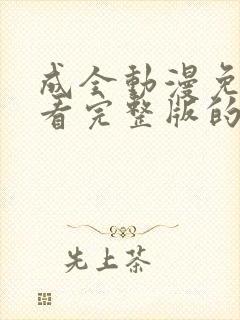 成全動漫免
看完整版的
先上茶